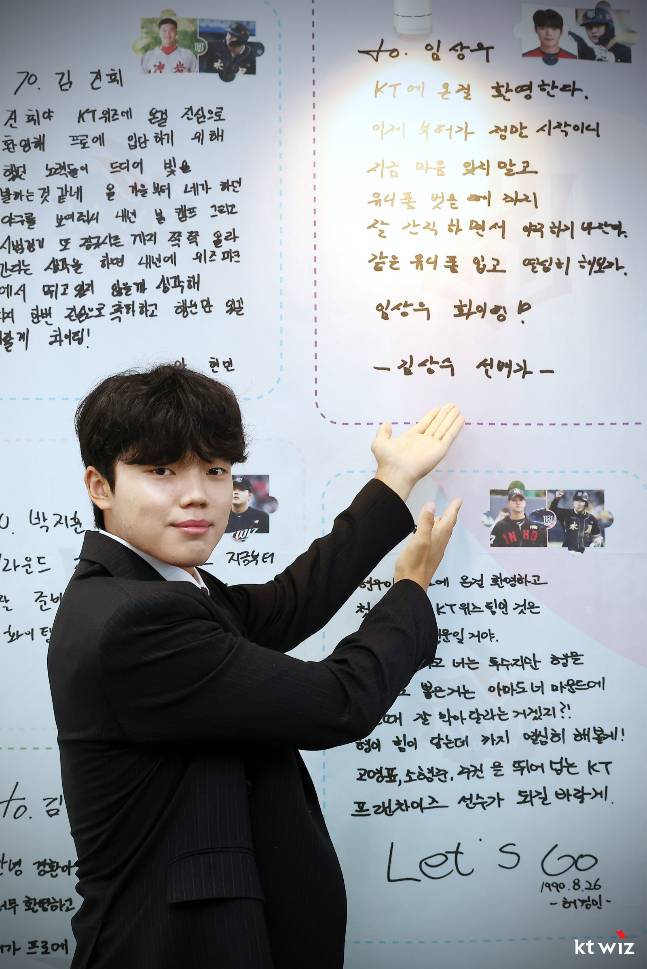 70. 김 건희
건희야 KT위즈에 온걸 진심으로
환영해 프로에 입단하기 위해
했던 노력들이 드디어 빛을
발하는것 같네 올 가을부터 네가 하던
야구를 보여줘서 내년 봄 캠프 그리고
시범경기 또 정규시즌 까지 쭉쭉 올라
간다는 생각을 하면 내년에 위즈파크
에서 뛰고 있지 않을까 생각해
다시 한번 진심으로 축하하고 행운만 있길
바랄게 화이팅!
현민
to. 임상우
KT에 온걸 환영한다.
이제 부터가 정말 시작이니
지금 마음 잊지말고
유니폼 벗을 때 까지
잘 간직 하면서 야구하기 바란다.
같은 유니폼 입고 열심히 해보자.
임상우 화이팅!
- 김상수 선배가 -
박지훈
라운드
지금부터
잘 준비
화이팅
온걸 환영하고
KT위즈팀인 것은
행운일 거야.
너는 투수지만 형을
뽑은거는 아마도 너 마운드에
때 잘 막아달라는거겠지?!
형이 힘이 닿는데 까지 열심히 해볼게!
고영표, 소형준, 주권 을 뛰어 넘는 KT
프랜차이즈 선수가 되길 바랄게.
Let's Go
1990.8.26
- 허경민 -
to. 김
안녕 경환아
너무 환영하고
프로에
kt wiz